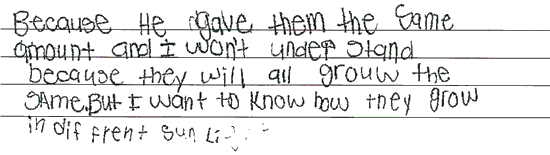 Because He gave them the same
amount and I won't under stand
because they will all grouw the
sAme.But I want to know how they grow
in dif frent sun